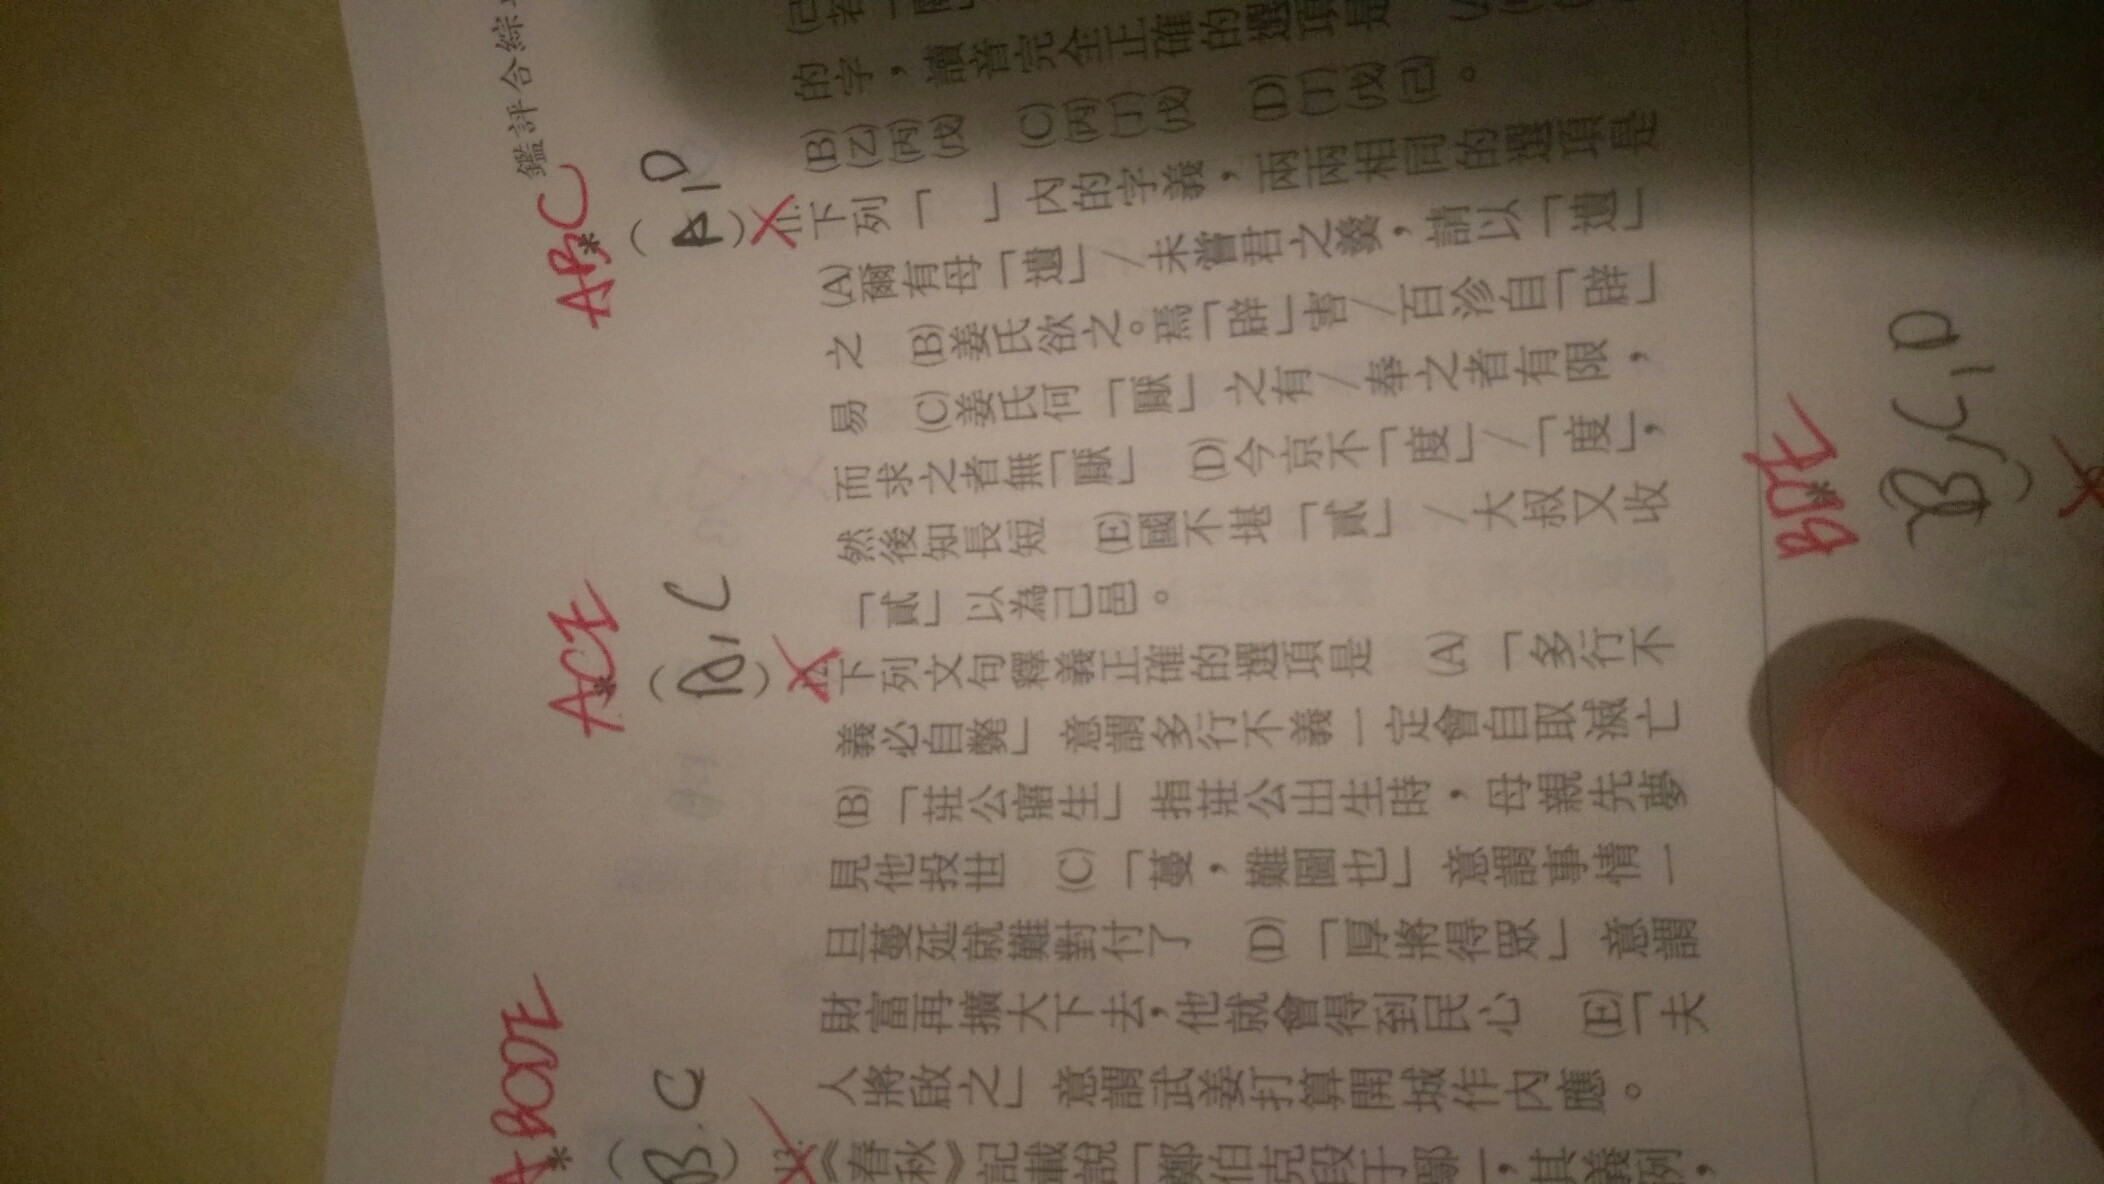 鑑評合綜
的字，讀音完全正確的選項是
(B)(乙)(丙)(戊) (C)(丙)(丁)(戊) (D)(丁)(戊)(己)。
ABC
*
(A,D)
11.下列「 」內的字義，兩兩相同的選項是
(A)爾有母「遺」/未嘗君之羹，請以「遺」
之 (B)姜氏欲之。焉「辟」害/百沴自「辟」
易 (C)姜氏何「厭」之有/奉之者有限，
而求之者無「厭」 (D)今京不「度」/「度」，
然後知長短 (E)國不堪「貳」/大叔又收
「貳」以為己邑。
ACE
*
(A,C)
12.下列文句釋義正確的選項是 (A)「多行不
義必自斃」意謂多行不義一定會自取滅亡
(B)「莊公寤生」指莊公出生時，母親先夢
見他投世 (C)「蔓，難圖也」意謂事情一
旦蔓延就難對付了 (D)「厚將得眾」意謂
財富再擴大下去，他就會得到民心 (E)「夫
人將啟之」意謂武姜打算開城作內應。
ABCDE
*
(B.C)
13.《春秋》記載說「鄭伯克段于鄢」，其義例，
BDE
*
(B,C,D